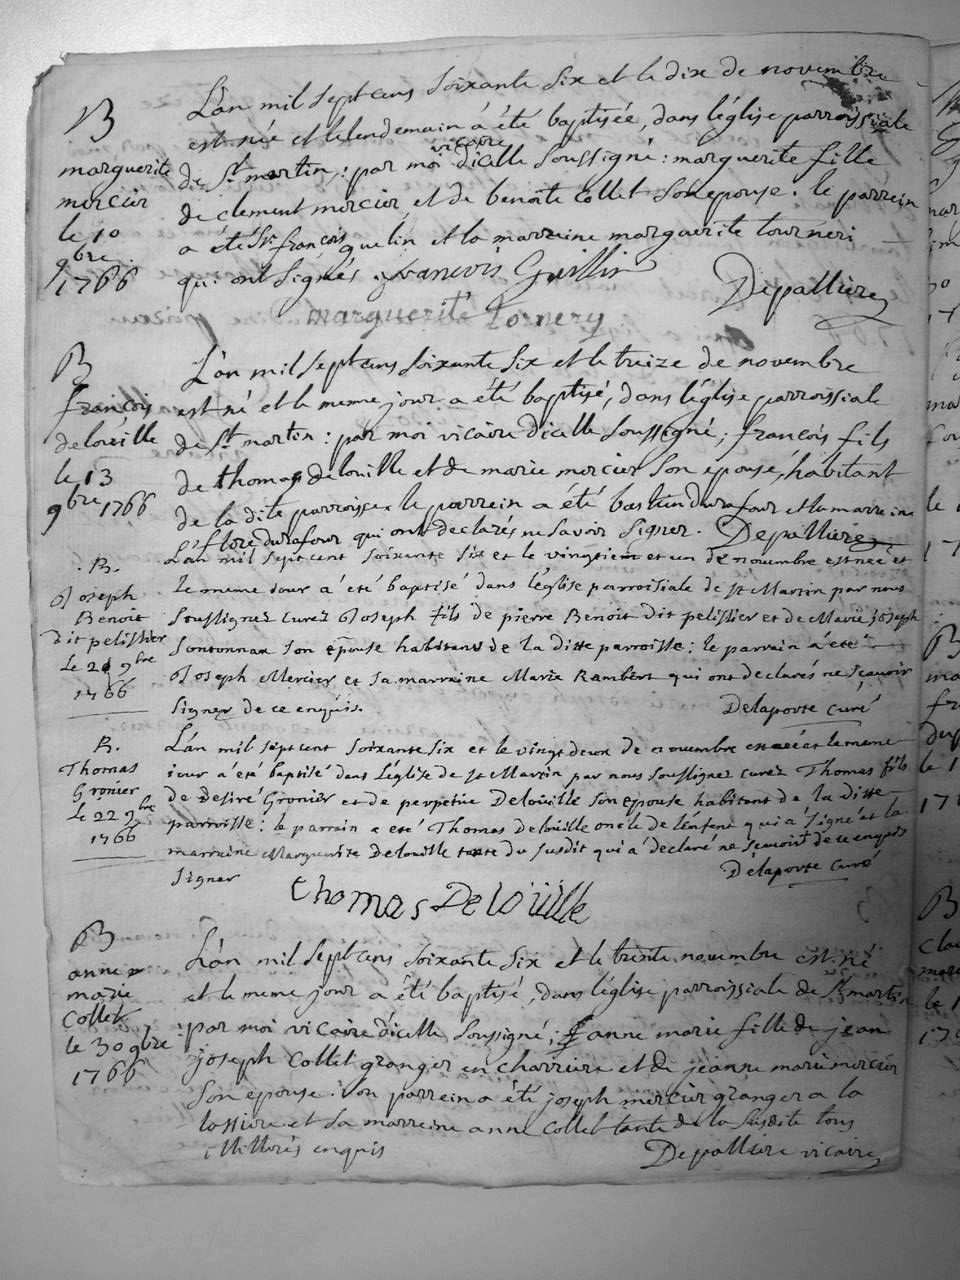 B
marguerite
mercier
le 10
9bre
1766
L'an mil sept cens soixante six et le dix de novembre
est née et le lendemain a été baptisée, dans l'église parroissiale
de St martin, : par moi vicaire d'icelle soussigné : marguerite fille
de clement mercier, et de benoite collet son epouse. le parrein
a été Sr françois guelin et la marreine marguerite tourneri
qui ont signés françois Guillin Depalliere
marguerite tornery
B
françois
delouille
le 13
9bre 1766
L'an mil sept cens soixante six et le treize de novembre
est né et le meme jour a été baptisé, dans l'église parroissiale
de St martin : par moi vicaire d'icelle soussigné, françois fils
de thomas delouille et de marie mercier son epouse, habitant
de la dite parroisse. le parrein a été bastien durafour et la marreine
flore durafour qui ont declarés ne savoir signer. Depalliere
B.
Joseph
Benoit
dit pelissier
Le 21 9bre
1766
L'an mil sept cent soixante six et le vingtiem et un de novembre est née et
Le meme Jour a été baptisé dans l'église parroisiale de St Martin par nous
soussignez curez Joseph fils de pierre Benoit dit pelissier et de Marie joseph
son épouse habitans de la ditte parroisse : le parrain a été
Joseph Mercier et sa marraine Marie Rambért qui ont declarés ne sçavoir
signer de ce enquis. Delaporte curé
B.
Thomas
Gronier
Le 22 9bre
1766
L'an mil sept cent soixante six et le vingt deux de novembre est née et le meme
iour a été baptisé dans L'église de St Martin par nous soussignez curez Thomas fils
de Desiré Gronier et de perpetüe Deloüille son epouse habitant de la ditte
parroisse : le parrain a eté Thomas deloüille oncle de l'enfent qui a signé et la
marraine Marguerite Delouille tante du susdit qui a déclaré ne sçavoir de ce enquis
signer Délaporte curé
thomas Deloüille
B
anne
marie
Collet
le 30 9bre
1766
L'an mil sept cens soixante six et le trente novembre est né
et le meme jour a été baptisé, dans l'église parroissiale de St martin
par moi vicaire d'icelle soussigné ; anne marie fille de jean
joseph Collet granger en charriere et de jeanne marie mercier
son epouse. son parrein a été joseph mercier granger a la
lassiere et sa marreine anne Collet tante de la susdite tous
illitterés enquis Depalliere vicaire